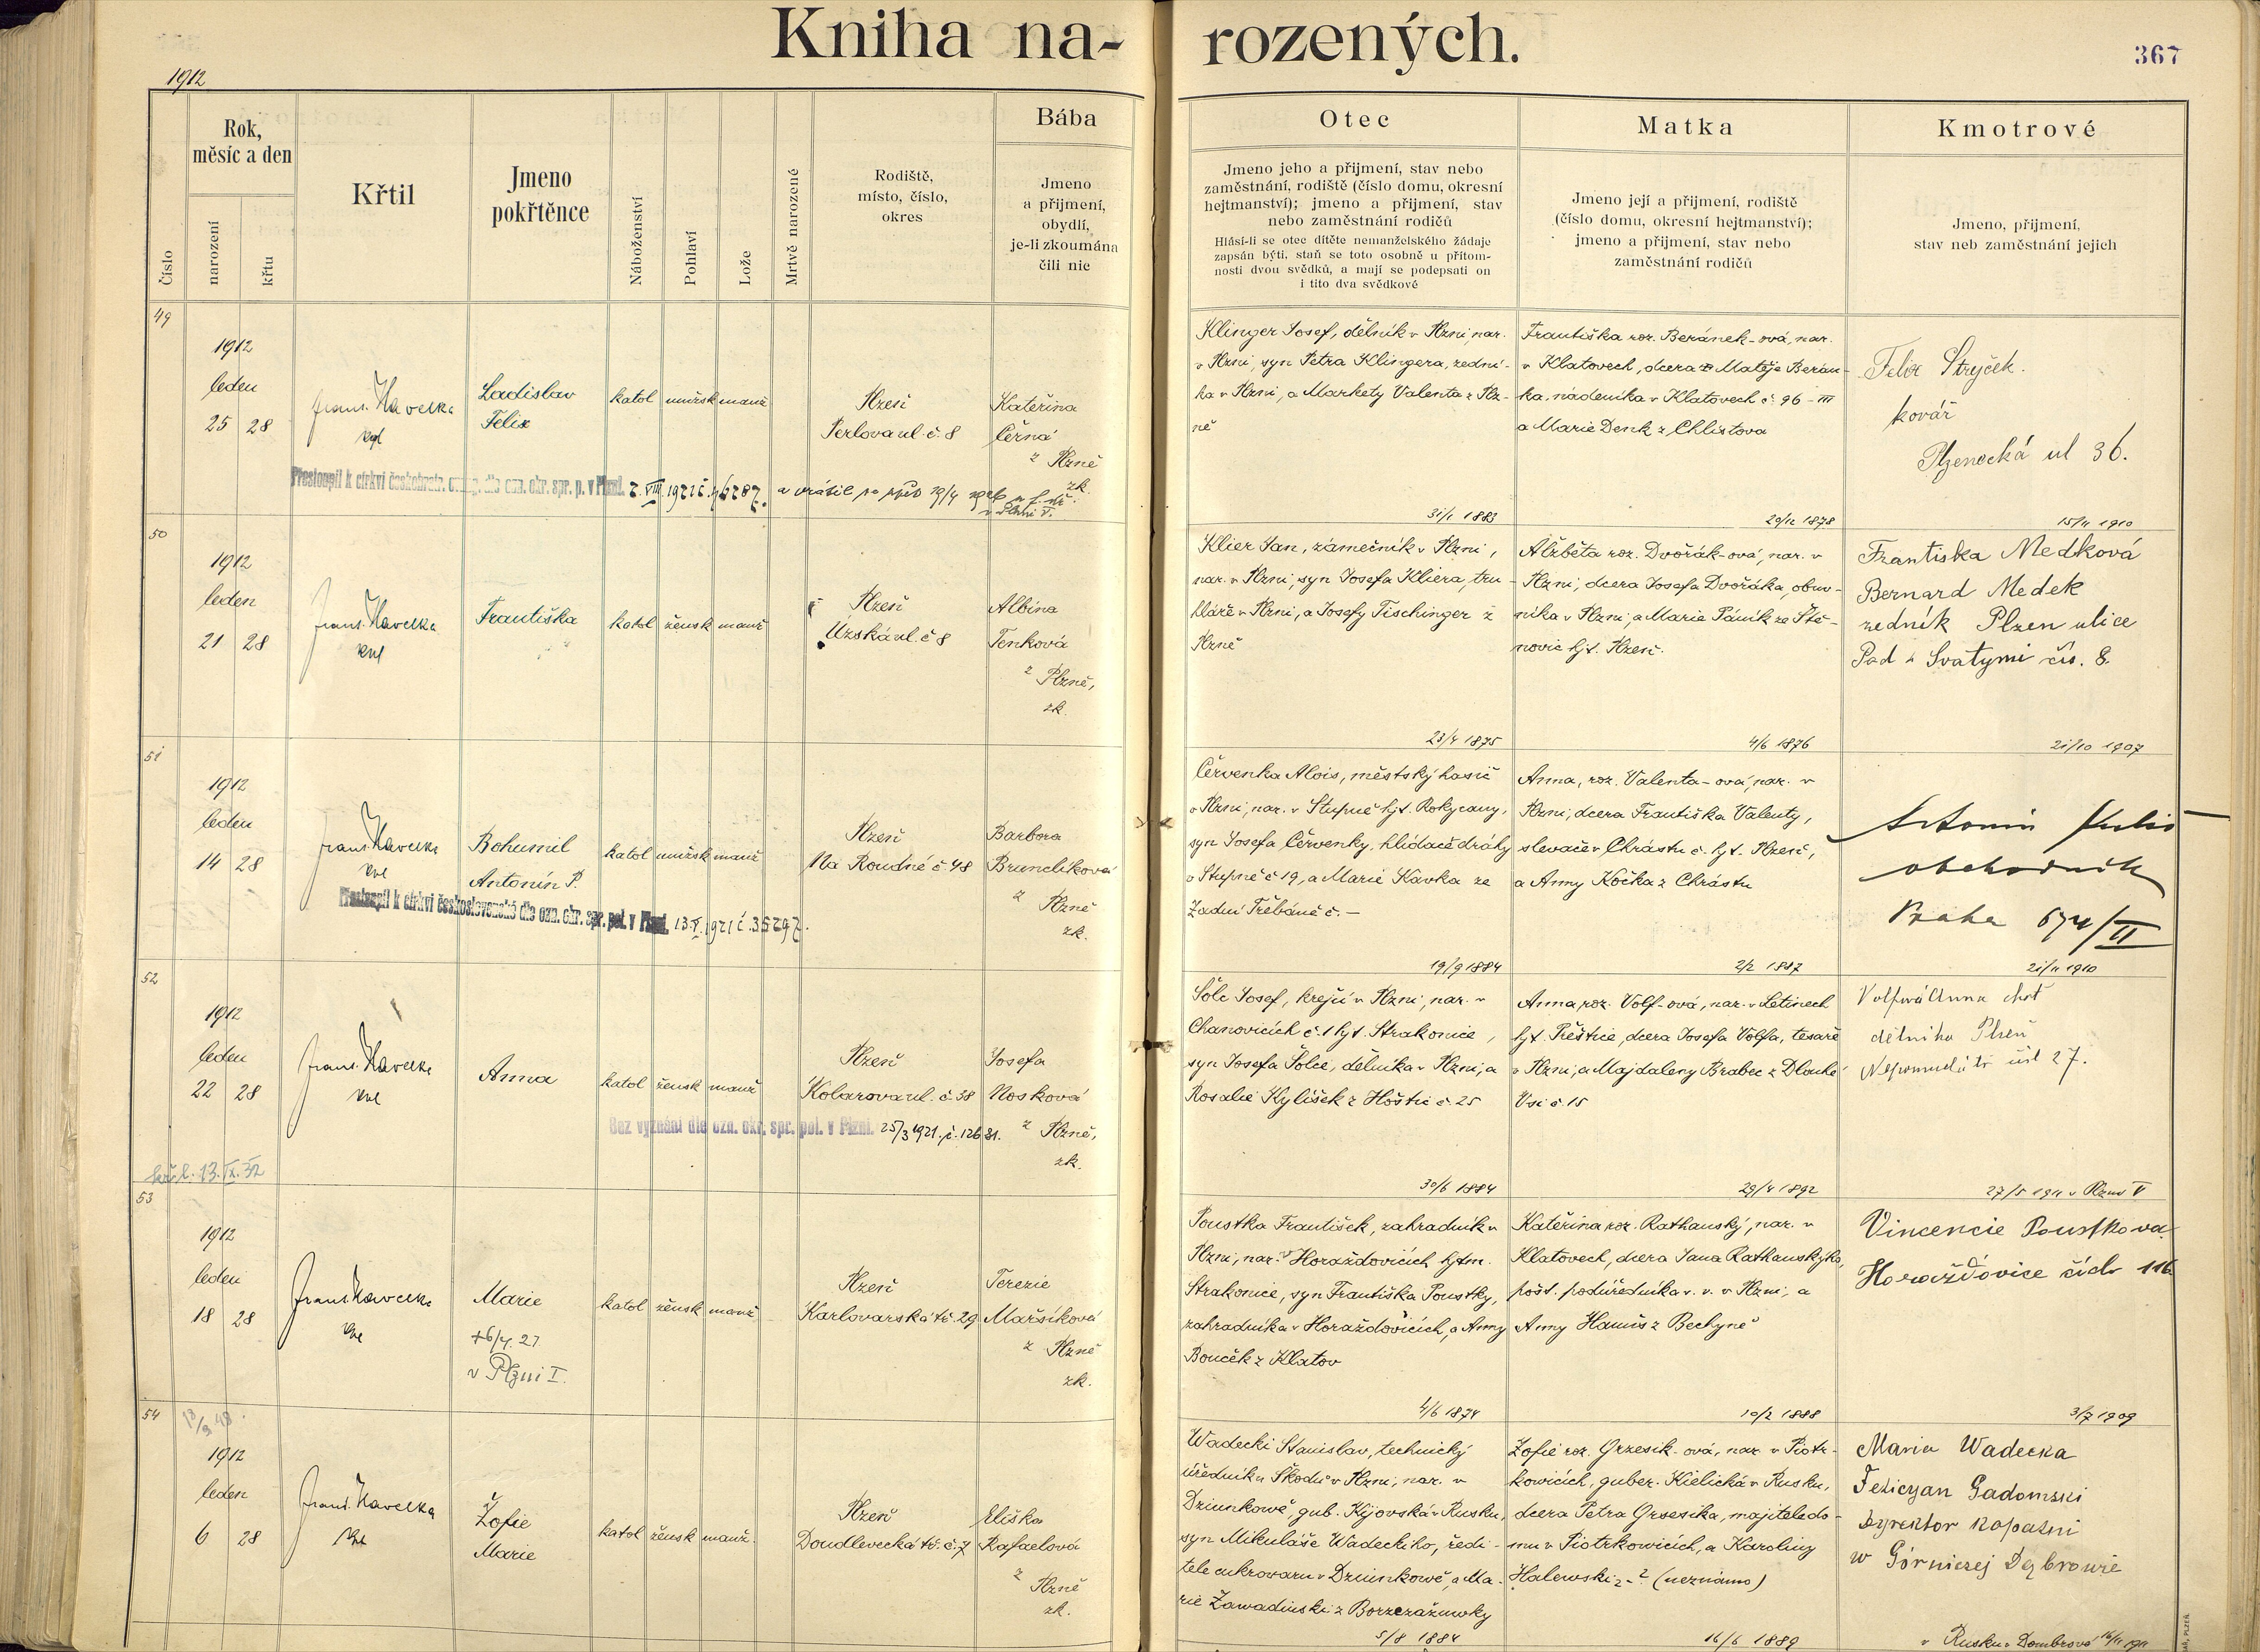 Kniha na-
rozených.
367
1912
Číslo
Rok,
měsíc a den
narození
křtu
Křtil
Jmeno
pokřtěnce
Náboženství
Pohlaví
Lože
Mrtvě narozené
Rodiště,
místo, číslo,
okres
Bába
Jmeno
a přijmení,
obydlí,
je-li zkoumána
čili nic
Otec
Jmeno jeho a přijmení, stav nebo
zaměstnání, rodiště (číslo domu, okresní
hejtmanství); jmeno a přijmení, stav
nebo zaměstnání rodičů
Hlásí-li se otec dítěte nemanželského žádaje
zapsán býti, staň se toto osobně u přítom-
nosti dvou svědků, a mají se podepsati on
i tito dva svědkové
Matka
Jmeno její a přijmení, rodiště
(číslo domu, okresní hejtmanství);
jmeno a přijmení, stav nebo
zaměstnání rodičů
Kmotrové
Jmeno, přijmení,
stav neb zaměstnání jejich
49
1912
leden
25 28
Frant. Havelka
Ladislav
Felix
katol mužsk manž
Plzeň
Perlova ul. č. 8
Kateřina
Černá
z Plzně
zk.
Přestoupil k církvi českobratr. dle ozn. okr. spr. p. v Plzni. 2. VIII. 1921 č. 46287. a vrátil se zpět 19/4
Klinger Josef, dělník v Plzni, nar.
v Plzni, syn Petra Klingera, zední-
ka v Plzni, a Markety Valenta z Plz-
ně
31/1 1883
Františka roz. Beránek-ová, nar.
v Klatovech, dcera Matěje Berán-
ka, nádeníka v Klatovech č. 96-III
a Marie Denk z Chlistova
29/12 1878
Felix Stryček.
kovář
Plzenecká ul 36.
15/11 1910
50
1912
leden
21 28
Frant. Havelka
Františka
katol žensk manž
Plzeň
Úzská ul. č 8
Albína
Tenková
z Plzně,
zk.
Klier Jan, zámečník v Plzni,
nar. v Plzni, syn Josefa Kliera, tru-
hláře v Plzni, a Josefy Tischinger z
Plzně
23/4 1875
Alžběta roz. Dvořák-ová, nar. v
Plzni, dcera Josefa Dvořáka, obuv-
níka v Plzni, a Marie Páník ze Ště-
novic hjt. Plzeň.
4/6 1876
Frantiska Medková
Bernard Medek
zedník Plzen ulice
Pod Svatymi čis. 8.
21/10 1907
51
1912
leden
14 28
Frant. Havelka
Bohumil
Antonín P.
katol mužsk manž
Plzeň
Na Roudné č. 48
Barbora
Brunclíková
z Plzně
zk.
Přestoupil k církvi československé dle ozn. okr. spr. pol. v Plzni. 13. V. 1921 č. 35297.
Červenka Alois, městský hasič
v Plzni, nar. v Stupně hjt. Rokycany,
syn Josefa Červenky, hlídače dráhy
v Stupně č 19, a Marie Kavka ze
Zadní Třebáně č. –
19/9 1884
Anna, roz. Valenta-ová, nar. v
Plzni, dcera Františka Valenty,
slevače v Chrástu č. hjt. Plzeň,
a Anny Kočka z Chrástu
2/2 1887
Antonín
obchodník
Praha 674/II
21/11 1910
52
1912
leden
22 28
Frant. Havelka
Anna
katol žensk manž
Plzeň
Kolarova ul. č. 38
Josefa
Nosková
z Plzně,
zk.
Bez vyznání dle ozn. okr. spr. pol. v Plzni. 25/3 1921. č. 12681.
13. IX. 32
Šolc Josef, krejčí v Plzni, nar. v
Chanovicích č. 1 hjt. Strakonice,
syn Josefa Šolce, dělníka v Plzni, a
Rosalie Kylíšek z Hoštic č. 25
30/6 1884
Anna, roz. Volf-ová, nar. v Letinech
hjt. Přeštice, dcera Josefa Volfa, tesaře
v Plzni, a Majdaleny Brabec z Dlouhé
Vsi č. 15
29/4 1892
Volfová Anna chot
dělníka Plzeň
Nepomucká tř čís 27.
27/5 1911 v Plzni V
53
1912
leden
18 28
Frant. Havelka
Marie
+ 6/4. 27
v Plzni I.
katol žensk manž
Plzeň
Karlovarská tř. 29
Terezie
Maršíková
z Plzně
zk.
Poustka František, zahradník v
Plzni, nar. v Horažďovicích hjtm.
Strakonice, syn Františka Poustky,
zahradníka v Horažďovicích, a Anny
Bouček z Klatov
4/6 1874
Kateřina roz. Rathauský, nar. v
Klatovech, dcera Jana Rathauskýho,
pošt. podúředníka v. v. v Plzni, a
Anny Hamis z Bechyně
10/2 1888
Vincencie Poustkova
Horažďovice čislo 116
3/7 1909
54
13/3 48.
1912
leden
6 28
Frant. Havelka
Žofie
Marie
katol žensk manž.
Plzeň
Doudlevecká tř. č. 7
Eliška
Rafaelová
z Plzně
zk.
Wadecki Stanislav, technický
úředník u Škodů v Plzni, nar. v
Dziunkowě, gub. Kijovská v Rusku,
syn Mikuláše Wadeckiho, ředi-
tele cukrovaru v Dziunkowě, a Ma-
rie Zawadiuski z Borzezažuwky
5/8 1884
Zofie roz. Grzesik-ová, nar. v Piotr-
kowicích, guber. Kielická v Rusku,
dcera Petra Grzesika, majitele do-
mu v Piotrkowicích, a Karoliny
Halewski z ? (neznámo)
16/6 1889
Maria Wadecka
Felicyan Gadomski
dyrektor kopalni
w Górniczej Dąbrowie
v Rusku v Dombrově 16/11 1911